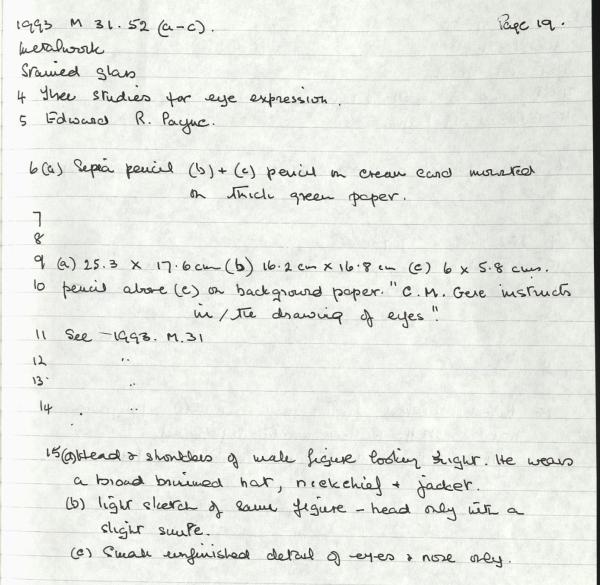 1993 M 31.52 (a-c). Page 19.
Metalwork
Stained glass
4 Three studies for eye expression.
5 Edward R. Payne.
6(a) Sepia pencil (b) + (c) pencil on cream card mounted
on thick green paper.
7
8
9 (a) 25.3 x 17.6 cm (b) 16.2 cm x 16.8 cm (c) 6 x 5.8 cms.
10 pencil above (c) on background paper. "C.M. Gere instructs
in / the drawing of eyes".
11 See - 1993. M.31
12 "
13. "
14 . "
15(a) Head & shoulders of male figure looking right. He wears
a broad brimmed hat, neckchief + jacket.
(b) light sketch of same figure - head only with a
slight smile.
(c) Small unfinished detail of eyes & nose only.